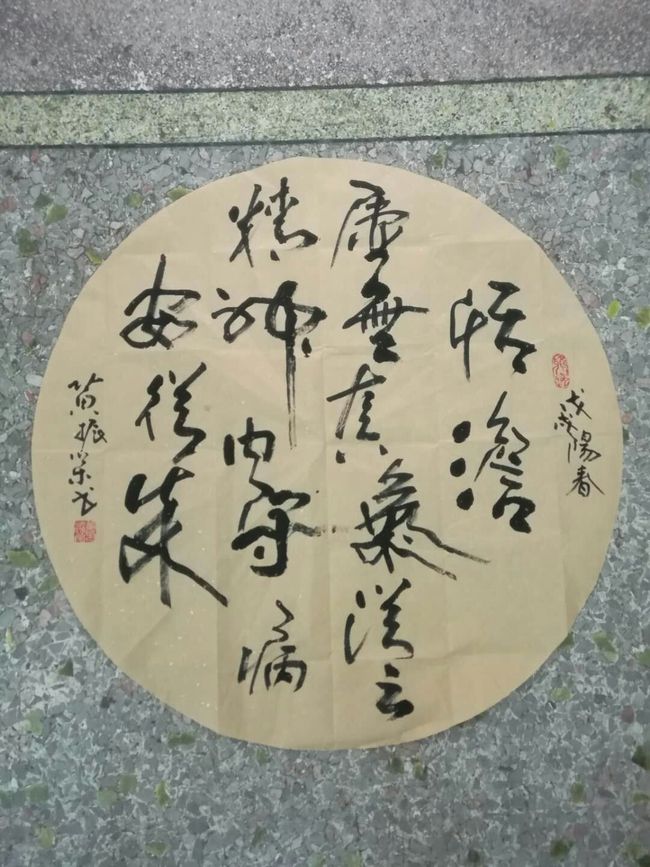 戊戌陽春
恬澹
虛無真氣從之
精神内守病
安從来
黄振荣书